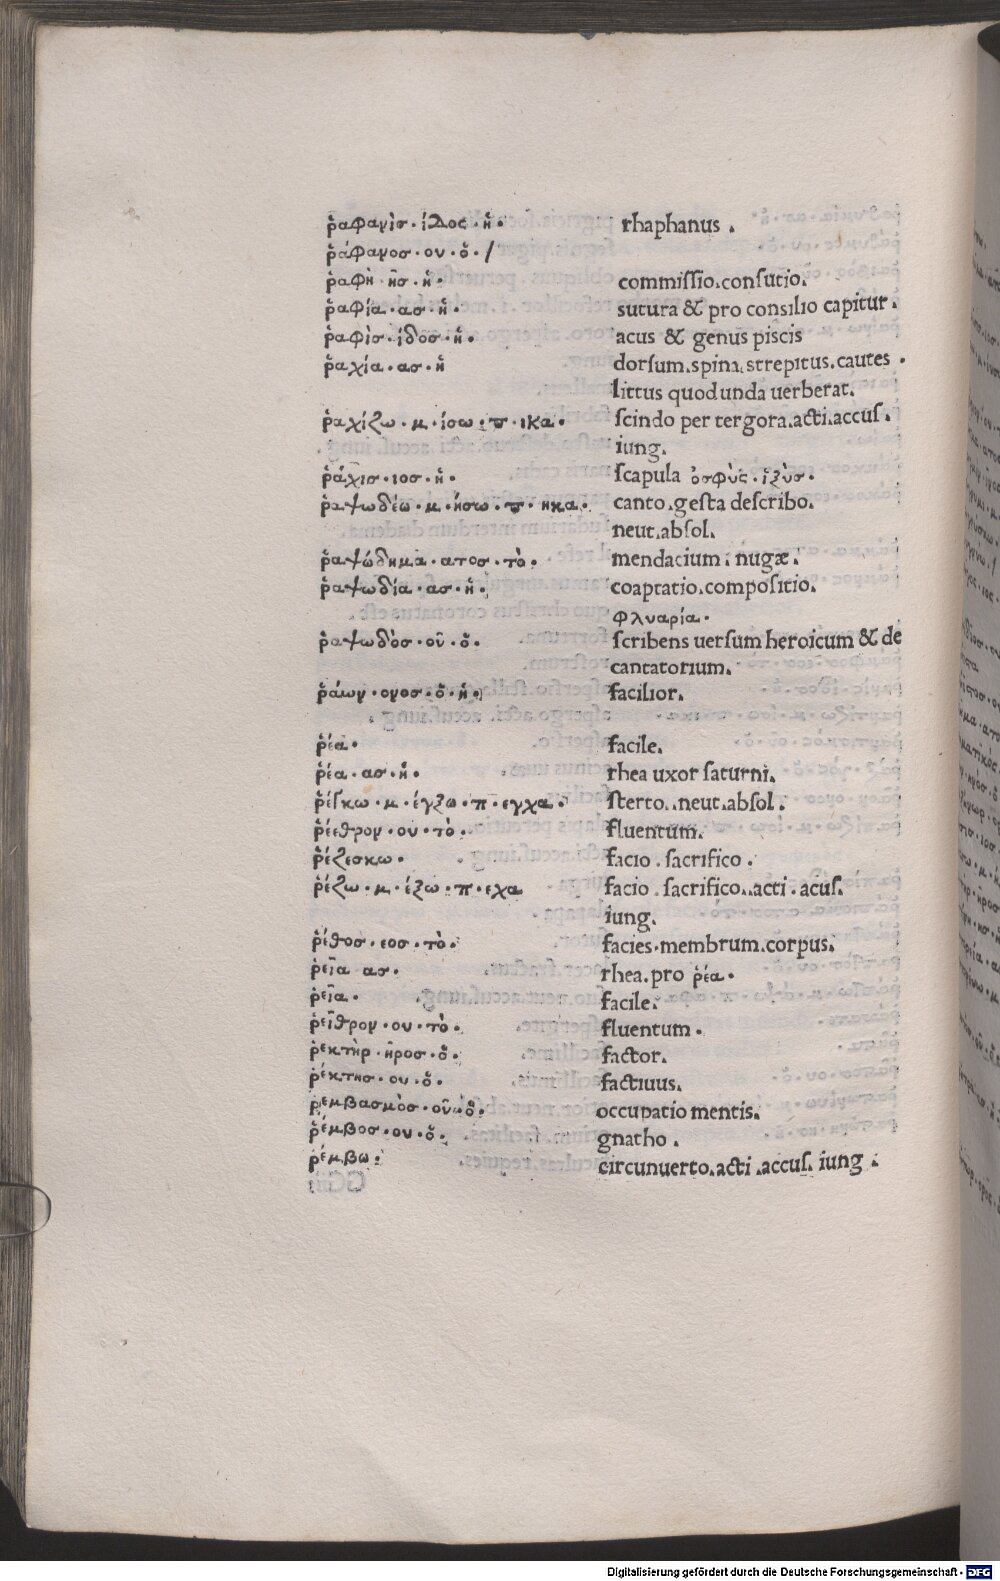 ῥαφανὶσ · ίδος · ἡ · rhaphanus .
ῥάφανοσ · ου · ὁ · /
ῥαφὴ · ῆσ · ἡ · commissio.consutio.
ῥαφία · ασ · ἡ · sutura & pro consilio capitur .
ῥαφὶσ · ίδοσ · ἡ · acus & genus piscis
ῥαχία · ασ · ἡ dorsum.spina.strepitus.cautes .
littus quod unda uerberat.
ῥαχίζω · μ · ίσω · π · ικα · scindo per tergora.acti.accus.
iung.
ῥάχισ · ιοσ · ἡ · scapula ὀσφὺς · ἰξὺσ ·
ῥαψωδέω · μ · ήσω · π · ηκα · canto.gesta describo.
neut.absol.
ῥαψώδημα · ατοσ · τὸ · mendacium. nugæ.
ῥαψωδία · ασ · ἡ · coaptatio.compositio.
φλυαρία ·
ῥαψωδὸσ · οῦ · ὁ · scribens uersum heroicum & de
cantatorium.
ῥάων · ονοσ · ὁ · ἡ · facilior.
ῥέα · facile.
ῥέα · ασ · ἡ · rhea uxor saturni.
ῥέγκω · μ · έγξω · π · εγχα · sterto. neut.absol .
ῥέεθρον · ου · τὸ · fluentum.
ῥέζεσκω · facio . sacrifico .
ῥέζω · μ · έξω · π · εχα facio . sacrifico..acti . acus.
iung.
ῥέθοσ · εοσ · τὸ · facies.membrum.corpus.
ῥεῖα ασ · rhea.pro ῥέα ·
ῥεῖα · facile.
ῥεῖθρον · ου · τὸ · fluentum .
ῥεκτὴρ · ῆροσ · ὁ · factor.
ῥέκτησ · ου · ὁ · factiuus.
ῥεμβασμὸσ · οῦ · ὁ · occupatio mentis.
ῥέμβοσ · ου · ὁ · gnatho .
ῥέμβω · circunuerto.acti .accus. iung .
Digitalisierung gefördert durch die Deutsche Forschungsgemeinschaft - DFG